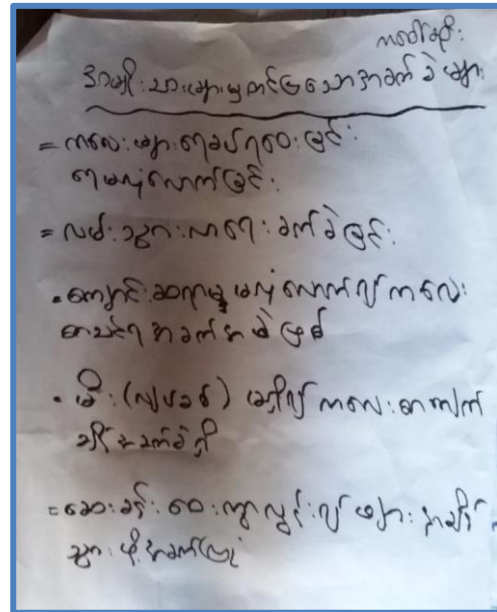 ကဒေါ်ဆိုး
အမျိုးသားများမှတင်ပြသောအခက်ခဲများ
= ကလေးများရေခပ်ရဝေးခြင်း
ရေမလုံလောက်ခြင်း
= လမ်းသွားလာရေးခက်ခဲခြင်း
- ကျောင်းဆရာမမလုံလောက်၍ကလေး
စာသင်ရအခက်အခဲဖြစ်
- မီး(လျှပ်စစ်)မရှိ၍ကလေးစာကျက်
ချိန်အခက်ခဲရှိ
= ဆေးခန်းဝေးကွာလွန်း၍ဖျားနာချိန်
သွားဖို့အခက်ကြုံ